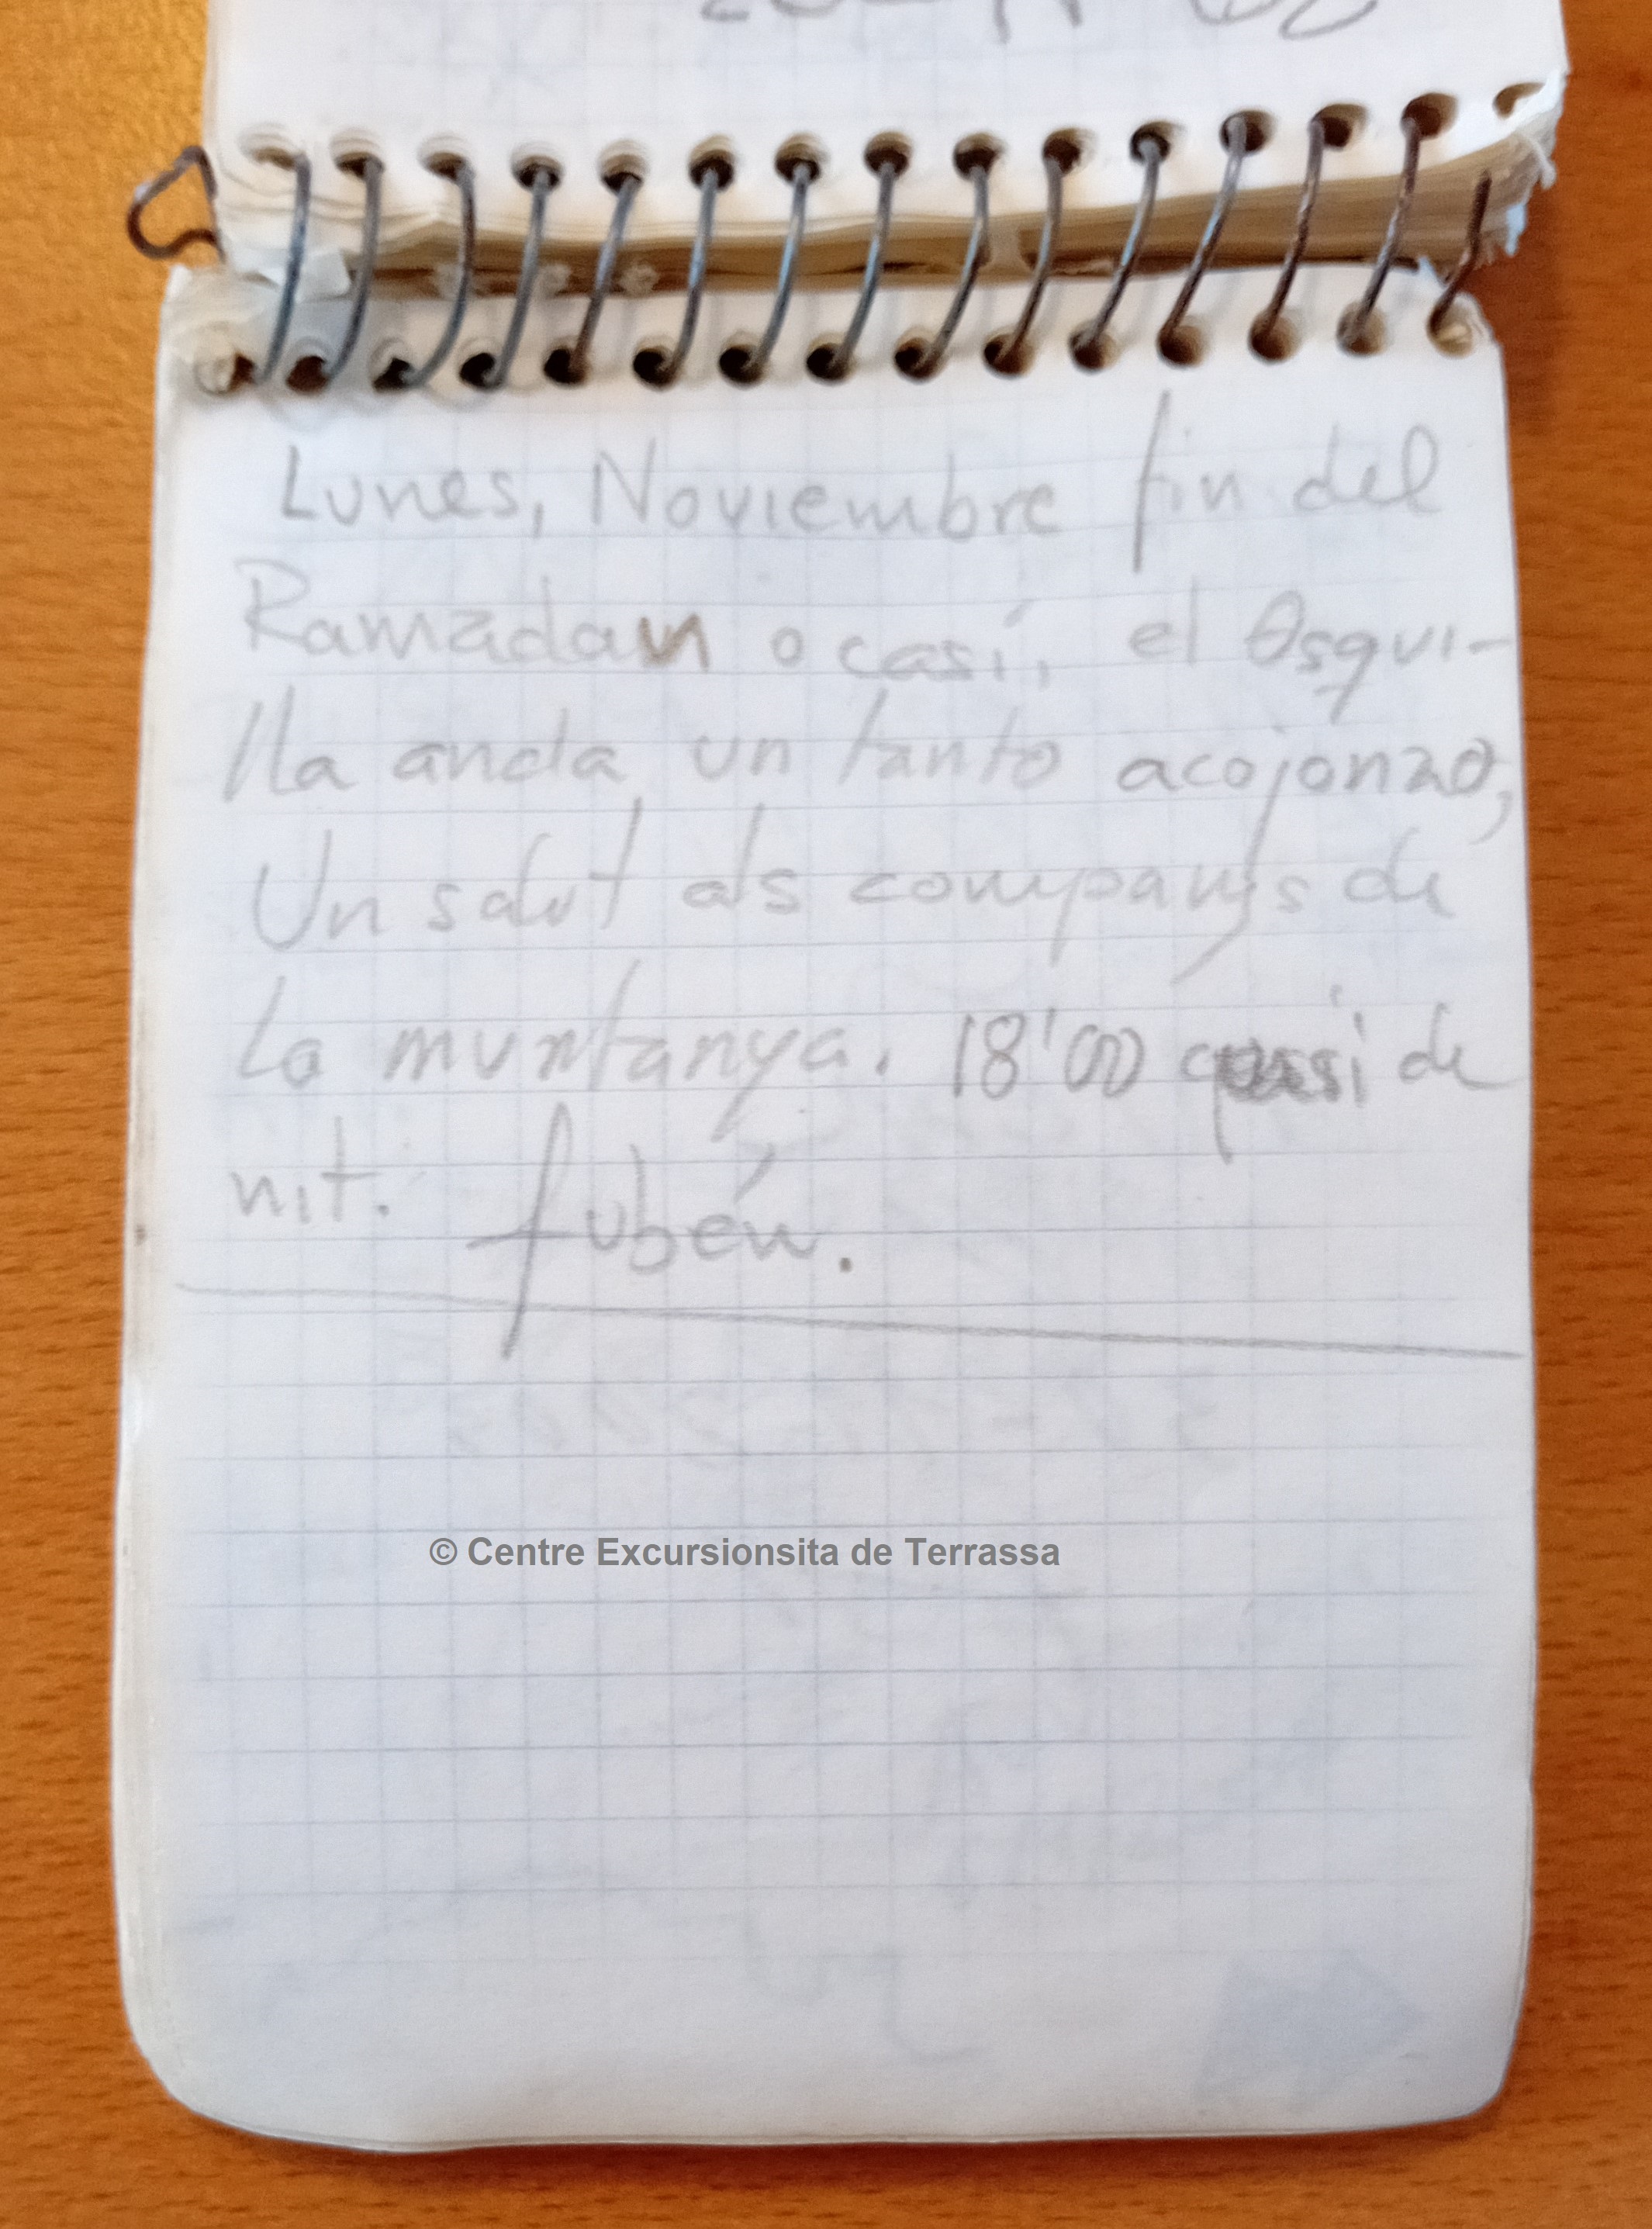 Lunes, Noviembre fin del
Ramadan o casí, el Osqui-
lla anda un tanto acojonao,
Un salut als companys de
La muntanya. 18'00 quasi de
nit. Rubén.
© Centre Excursionsita de Terrassa